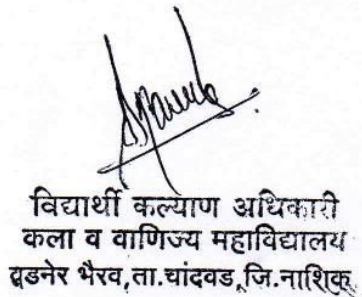 विद्यार्थी कल्याण अधिकारी
कला व वाणिज्य महाविद्यालय
वडनेर भैरव, ता.चांदवड, जि.नाशिक